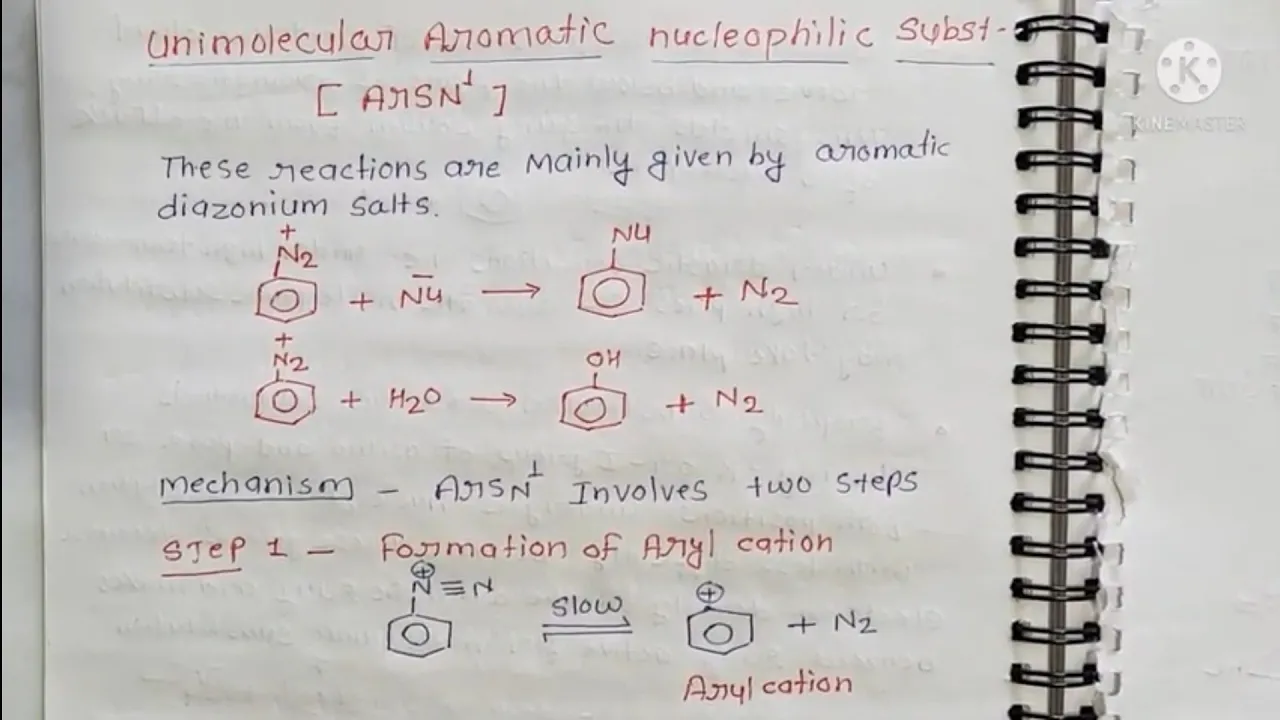 Unimolecular Aromatic nucleophilic Subst-
[ ArSN¹ ]
K
KINEMASTER
These reactions are mainly given by aromatic
diazonium salts.
+
N2 Nu
+ N̄u → + N2
+
N2 OH
+ H2O → + N2
Mechanism - ArSN¹ Involves two steps
STEP 1 - Formation of Aryl cation
⊕
N≡N slow ⊕
⇌ + N2
Aryl cation